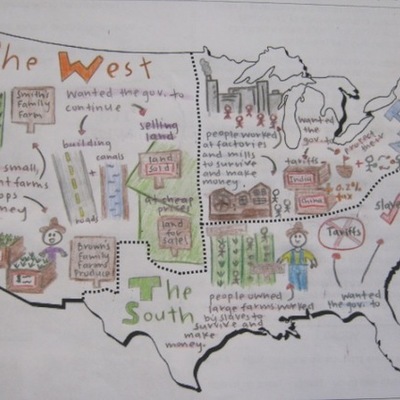 The West
Smith's
Family
Farm
Wanted the gov. to
continue
selling
land
building
+
canals
roads
land
Sold!
at cheap
prices
land
for
sale!
small,
farms
Brown's
family
farms
Produce
people worked
at factories
and mills
to survive
and make
money.
wanted
the gov.
to
protect
their
tariffs
India
China
+ 0.2%
tax
The
South
people owned
large farms worked
by slaves to
survive and
make
money.
Tariffs
wanted
the gov. to